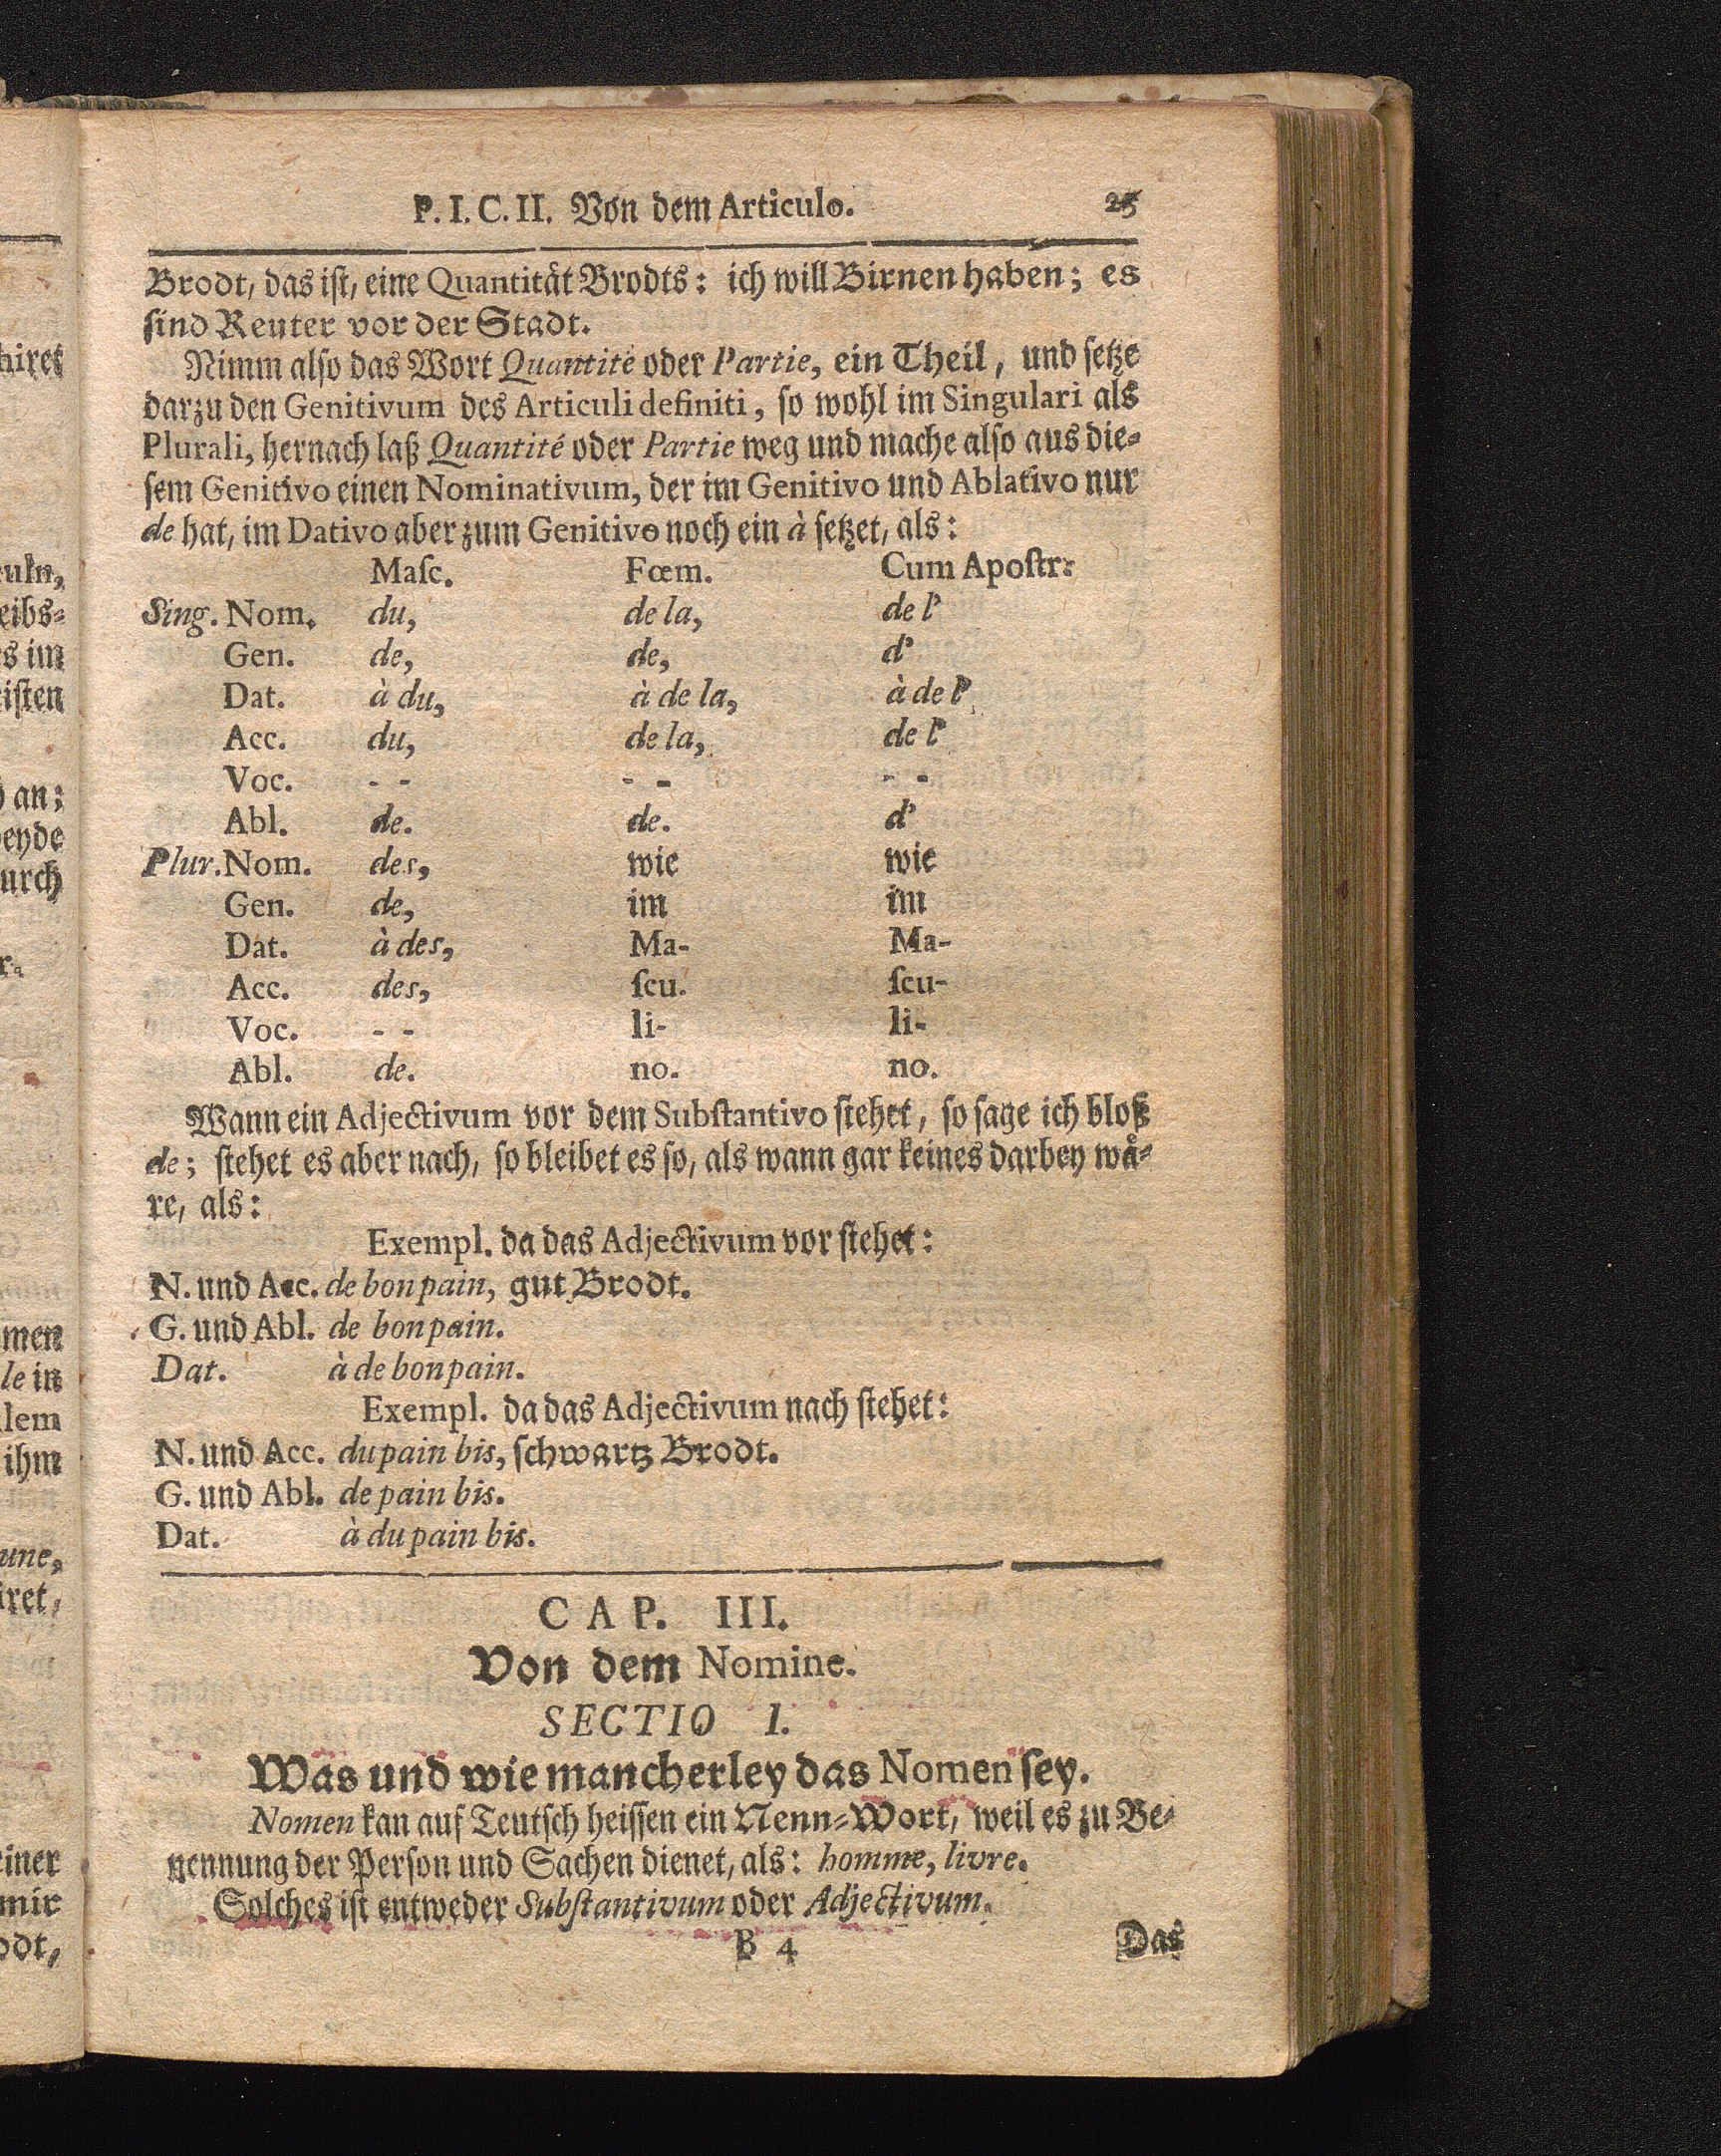 P. I. C. II. Von dem Articulo. 25
Brodt, das ist, eine Quantität Brodts: ich will Birnen haben; es
sind Reuter vor der Stadt.
Nimm also das Wort Quantité oder Partie, ein Theil, und setze
darzu den Genitivum des Articuli definiti, so wohl im Singulari als
Plurali, hernach laß Quantité oder Partie weg und mache also aus die-
sem Genitivo einen Nominativum, der im Genitivo und Ablativo nur
de hat, im Dativo aber zum Genitivo noch ein à setzet, als:
Masc. Fœm. Cum Apostr:
Sing. Nom. du, de la, de l'
Gen. de, de, d'
Dat. à du, à de la, à de l'
Acc. du, de la, de l'
Voc. - - - - - -
Abl. de. de. d'
Plur. Nom. des, wie wie
Gen. de, im im
Dat. à des, Ma- Ma-
Acc. des, scu. scu-
Voc. - - li- li-
Abl. de. no. no.
Wann ein Adjectivum vor dem Substantivo stehet, so sage ich bloß
de; stehet es aber nach, so bleibet es so, als wann gar keines darbey wå-
re, als:
Exempl. da das Adjectivum vor stehet:
N. und Acc. de bon pain, gut Brodt.
G. und Abl. de bon pain.
Dat. à de bon pain.
Exempl. da das Adjectivum nach stehet:
N. und Acc. du pain bis, schwartz Brodt.
G. und Abl. de pain bis.
Dat. à du pain bis.
CAP. III.
Von dem Nomine.
SECTIO I.
Was und wie mancherley das Nomen sey.
Nomen kan auf Teutsch heissen ein Nenn-Wort, weil es zu Be-
nennung der Person und Sachen dienet, als: homme, livre.
Solches ist entweder Substantivum oder Adjectivum.
B 4 Das